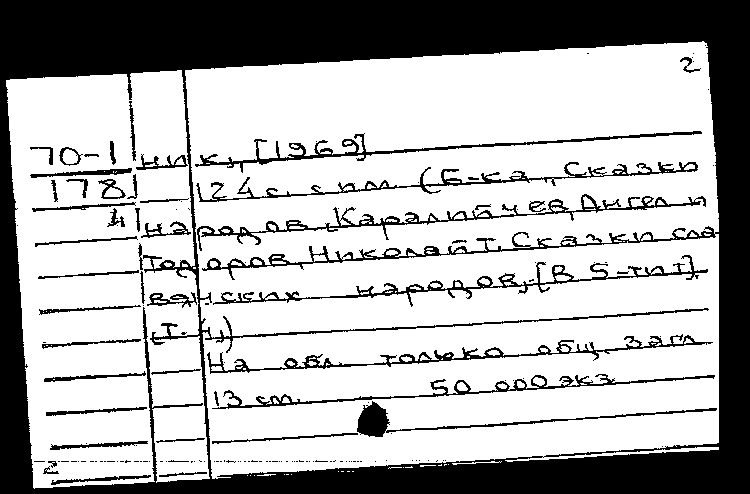 2
70-1 ник", [1969]
178 124 с. с ил. (Б-ка „Сказки
4 народов". Каралийчев, Ангел и
Тодоров, Николай Т. Сказки сла-
вянских народов, [В 5-ти т.].
[Т. 4])
На обл. только общ. загл.
13 см. 50 000 экз.
2